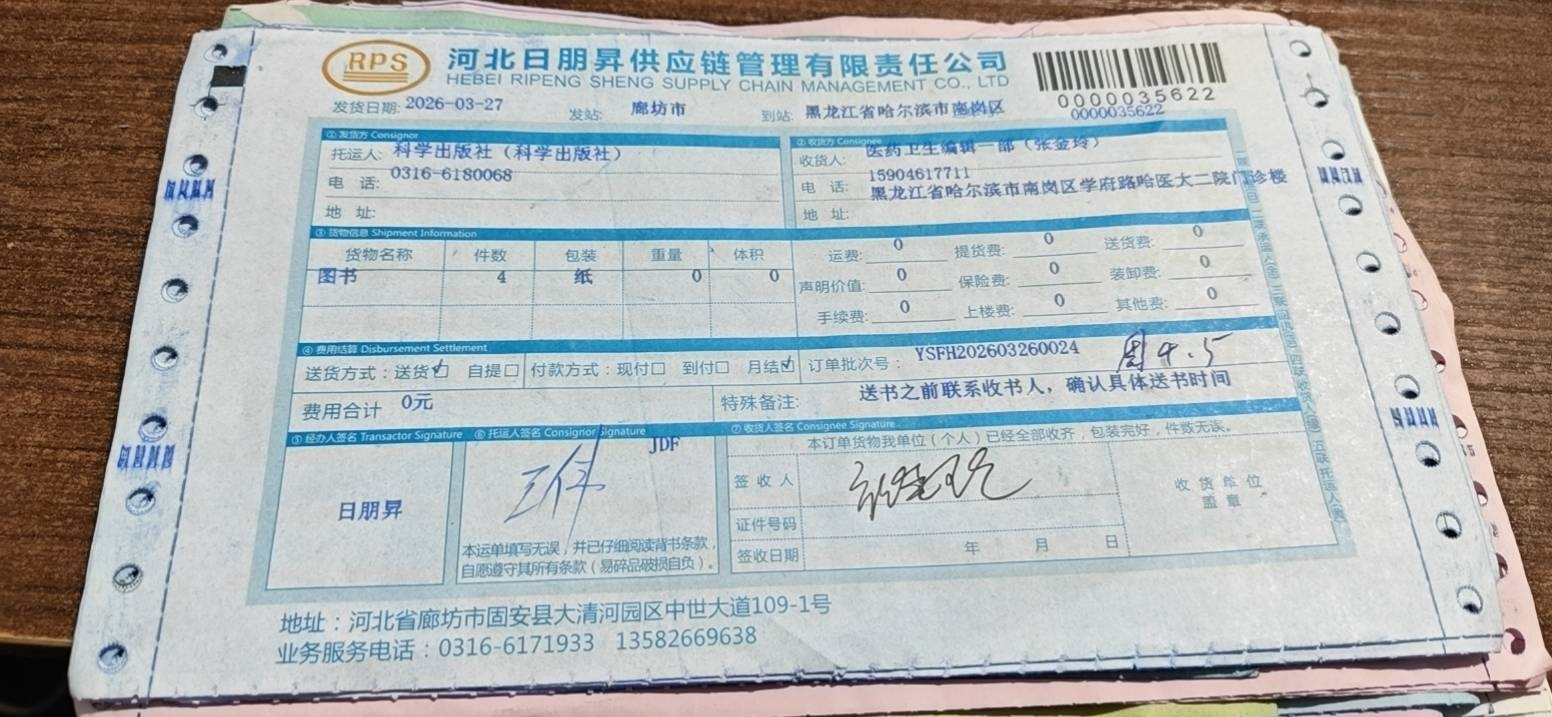 RPS
河北日朋昇供应链管理有限责任公司
HEBEI RIPENG SHENG SUPPLY CHAIN MANAGEMENT CO., LTD
0000035622
发货日期: 2026-03-27 发站: 廊坊市 到站: 黑龙江省哈尔滨市南岗区 0000035622
① 发货方 Consignor ② 收货方 Consignee
托运人: 科学出版社（科学出版社） 收货人: 医药卫生编辑一部（张金玲）
电 话: 0316-6180068 电 话: 15904617711
地 址: 地 址: 黑龙江省哈尔滨市南岗区学府路哈医大二院门诊楼
③ 货物信息 Shipment Information
货物名称 件数 包装 重量 体积 运费: 0 提货费: 0 送货费: 0
图书 4 纸 0 0 声明价值: 0 保险费: 0 装卸费: 0
手续费: 0 上楼费: 0 其他费: 0
④ 费用结算 Disbursement Settlement
送货方式：送货☑ 自提□ 付款方式：现付□ 到付□ 月结☑ 订单批次号： YSFH202603260024 周4.5
费用合计 0元 特殊备注: 送书之前联系收书人，确认具体送书时间
⑤ 经办人签名 Transactor Signature ⑥ 托运人签名 Consignor Signature ⑦ 收货人签名 Consignee Signature
JDF 本订单货物我单位（个人）已经全部收齐，包装完好，件数无误。
日朋昇 签 收 人 收 货 单 位
盖 章
证件号码
本运单填写无误，并已仔细阅读背书条款，
自愿遵守其所有条款（易碎品破损自负）。 签收日期 年 月 日
地址：河北省廊坊市固安县大清河园区中世大道109-1号
业务服务电话：0316-6171933 13582669638